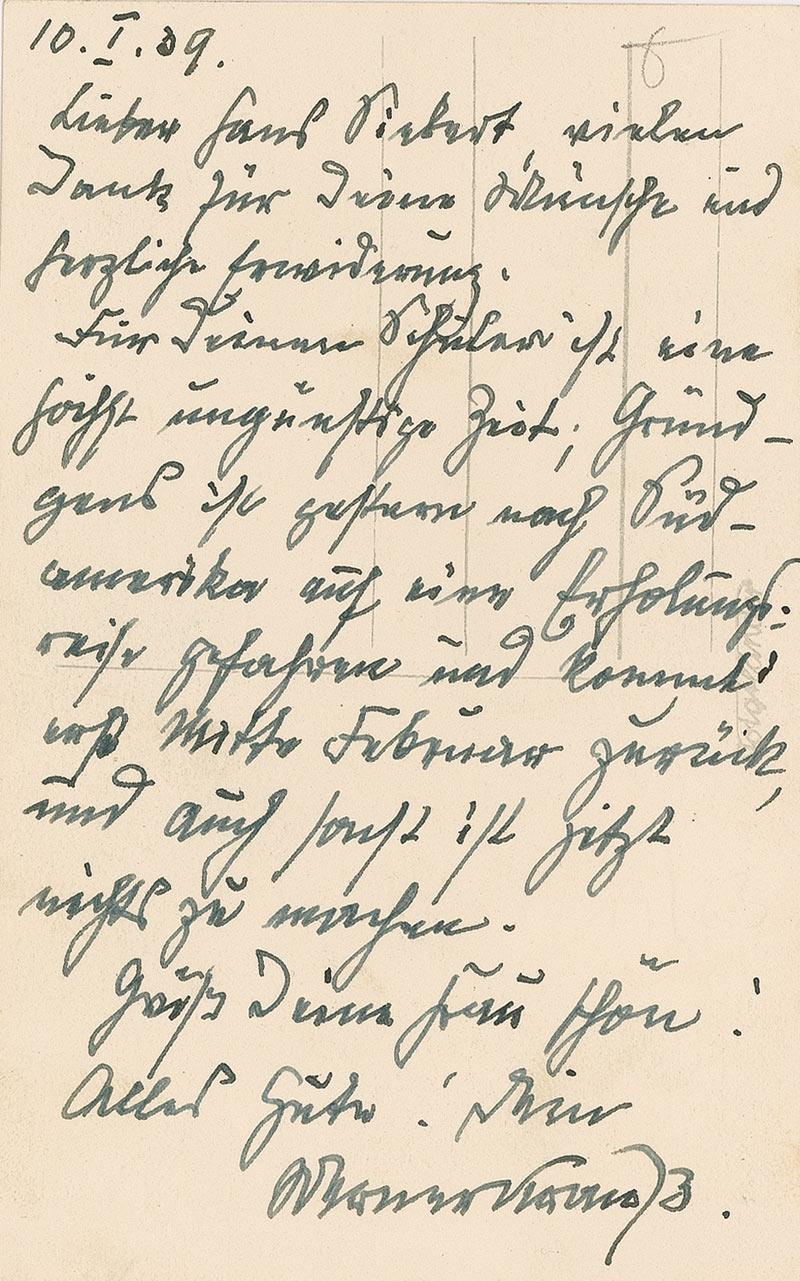 10. I. 39.
Lieber Hans Siebert, vielen
Dank für Deine Wünsche und
herzliche Erwiderung.
Für Deinen Schüler ist eine
höchst ungünstige Zeit; Gründ-
gens ist gestern nach Süd-
amerika auf eine Erholungs-
reise gefahren und kommt
erst Mitte Februar zurück,
und auch sonst ist jetzt
nichts zu machen.
Grüß Deine Frau schön!
Alles Gute! Dein
Werner Krauß.